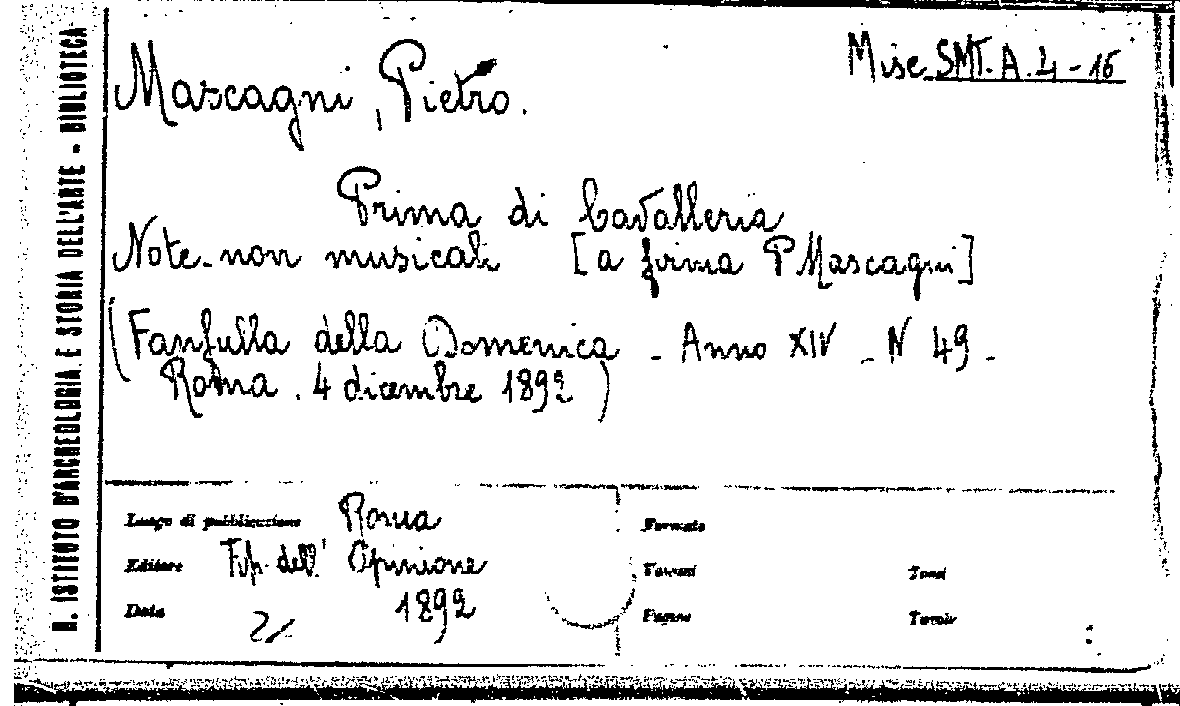 R. ISTITUTO D'ARCHEOLOGIA E STORIA DELL'ARTE - BIBLIOTECA
Misc. SMT. A. 4 - 16
Mascagni, Pietro.
Prima di Cavalleria
Note non musicali [a firma P Mascagni]
(Fanfulla della Domenica - Anno XIV - N 49 -
Roma. 4 dicembre 1892)
Luogo di pubblicazione Roma
Editore Tip. dell' Opinione
Data 1892
Formato
Volumi Tomi
Pagine Tavole